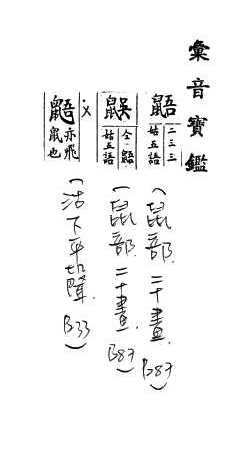 彙音寶鑑
鼯 二三三 姑五語
(鼠部 二十畫 B87)
䑕吳 仝鼯 姑五語
(鼠部 二十畫 B87)
鼯 亦飛鼠也
(沽下平切聲 B33)